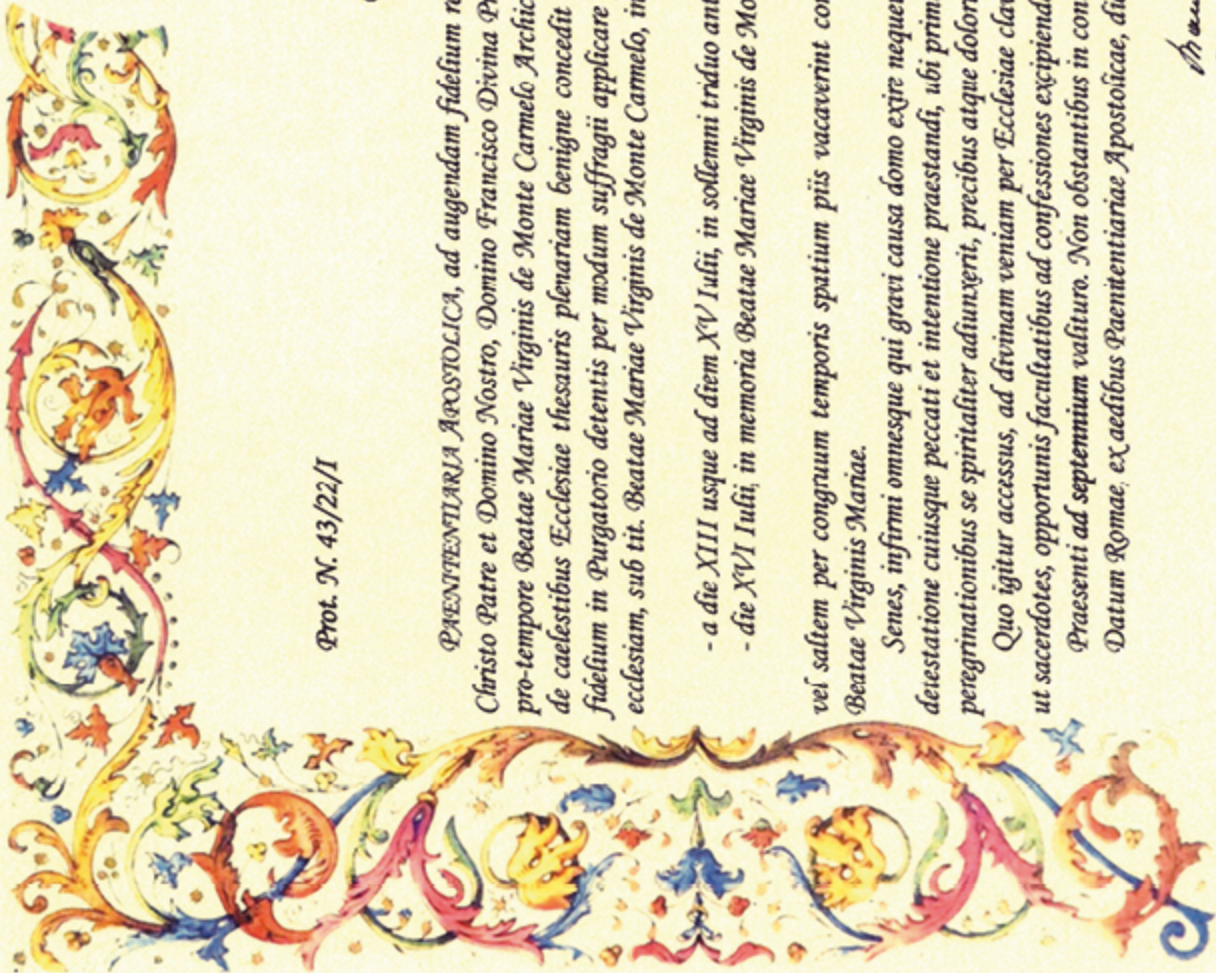 Prot. N. 43/22/I
PAENITENTIARIA APOSTOLICA, ad augendam fidelium
Christo Patre et Domino Nostro, Domino Francisco Divina
pro-tempore Beatae Mariae Virginis de Monte Carmelo
de caelestibus Ecclesiae thesauris plenariam benigne concedit
fidelium in Purgatorio detentis per modum suffragii applicare
ecclesiam, sub tit. Beatae Mariae Virginis de Monte Carmelo, in
- a die XIII usque ad diem XV Iulii, in sollemni triduo
- die XVI Iulii, in memoria Beatae Mariae Virginis de
vel saltem per congruum temporis spatium piis vacaverint
Beatae Virginis Mariae.
Senes, infirmi omnesque qui gravi causa domo exire
detestatione cuiusque peccati et intentione praestandi, ubi
peregrinationibus se spiritaliter adiunxerit, precibus atque
Quo igitur accessus, ad divinam veniam per Ecclesiae
ut sacerdotes, opportunis facultatibus ad confessiones
Praesenti ad septennium valituro. Non obstantibus in
Datum Romae, ex aedibus Paenitentiariae Apostolicae,